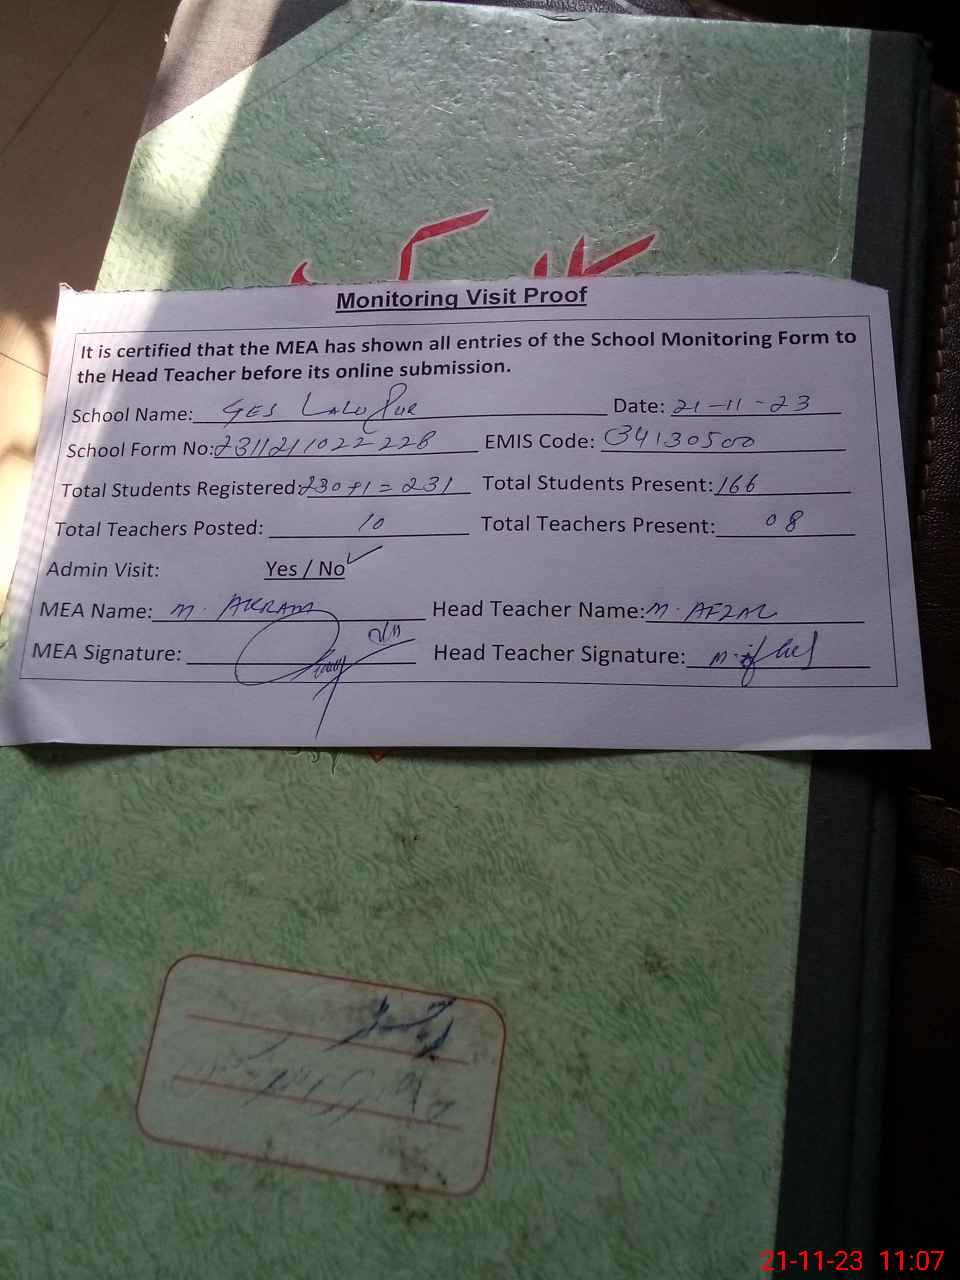 Monitoring Visit Proof
It is certified that the MEA has shown all entries of the School Monitoring Form to
the Head Teacher before its online submission.
School Name: GES LALU PUR Date: 21-11-23
School Form No: 2311211022228 EMIS Code: 34130500
Total Students Registered: 230+1=231 Total Students Present: 166
Total Teachers Posted: 10 Total Teachers Present: 08
Admin Visit: Yes / No ✓
MEA Name: M. AKRAM Head Teacher Name: M. AFZAL
MEA Signature: Head Teacher Signature:
21-11-23 11:07